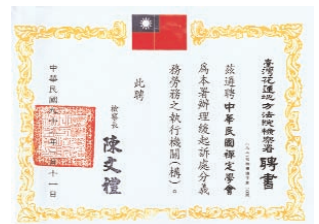 臺灣花蓮地方法院檢察署聘書
茲遴聘中華民國禪定學會
為本署辦理緩起訴處分義
務勞務之執行機關(構)。
此聘
檢察長
陳文禮
中華民國九十三年
十一日